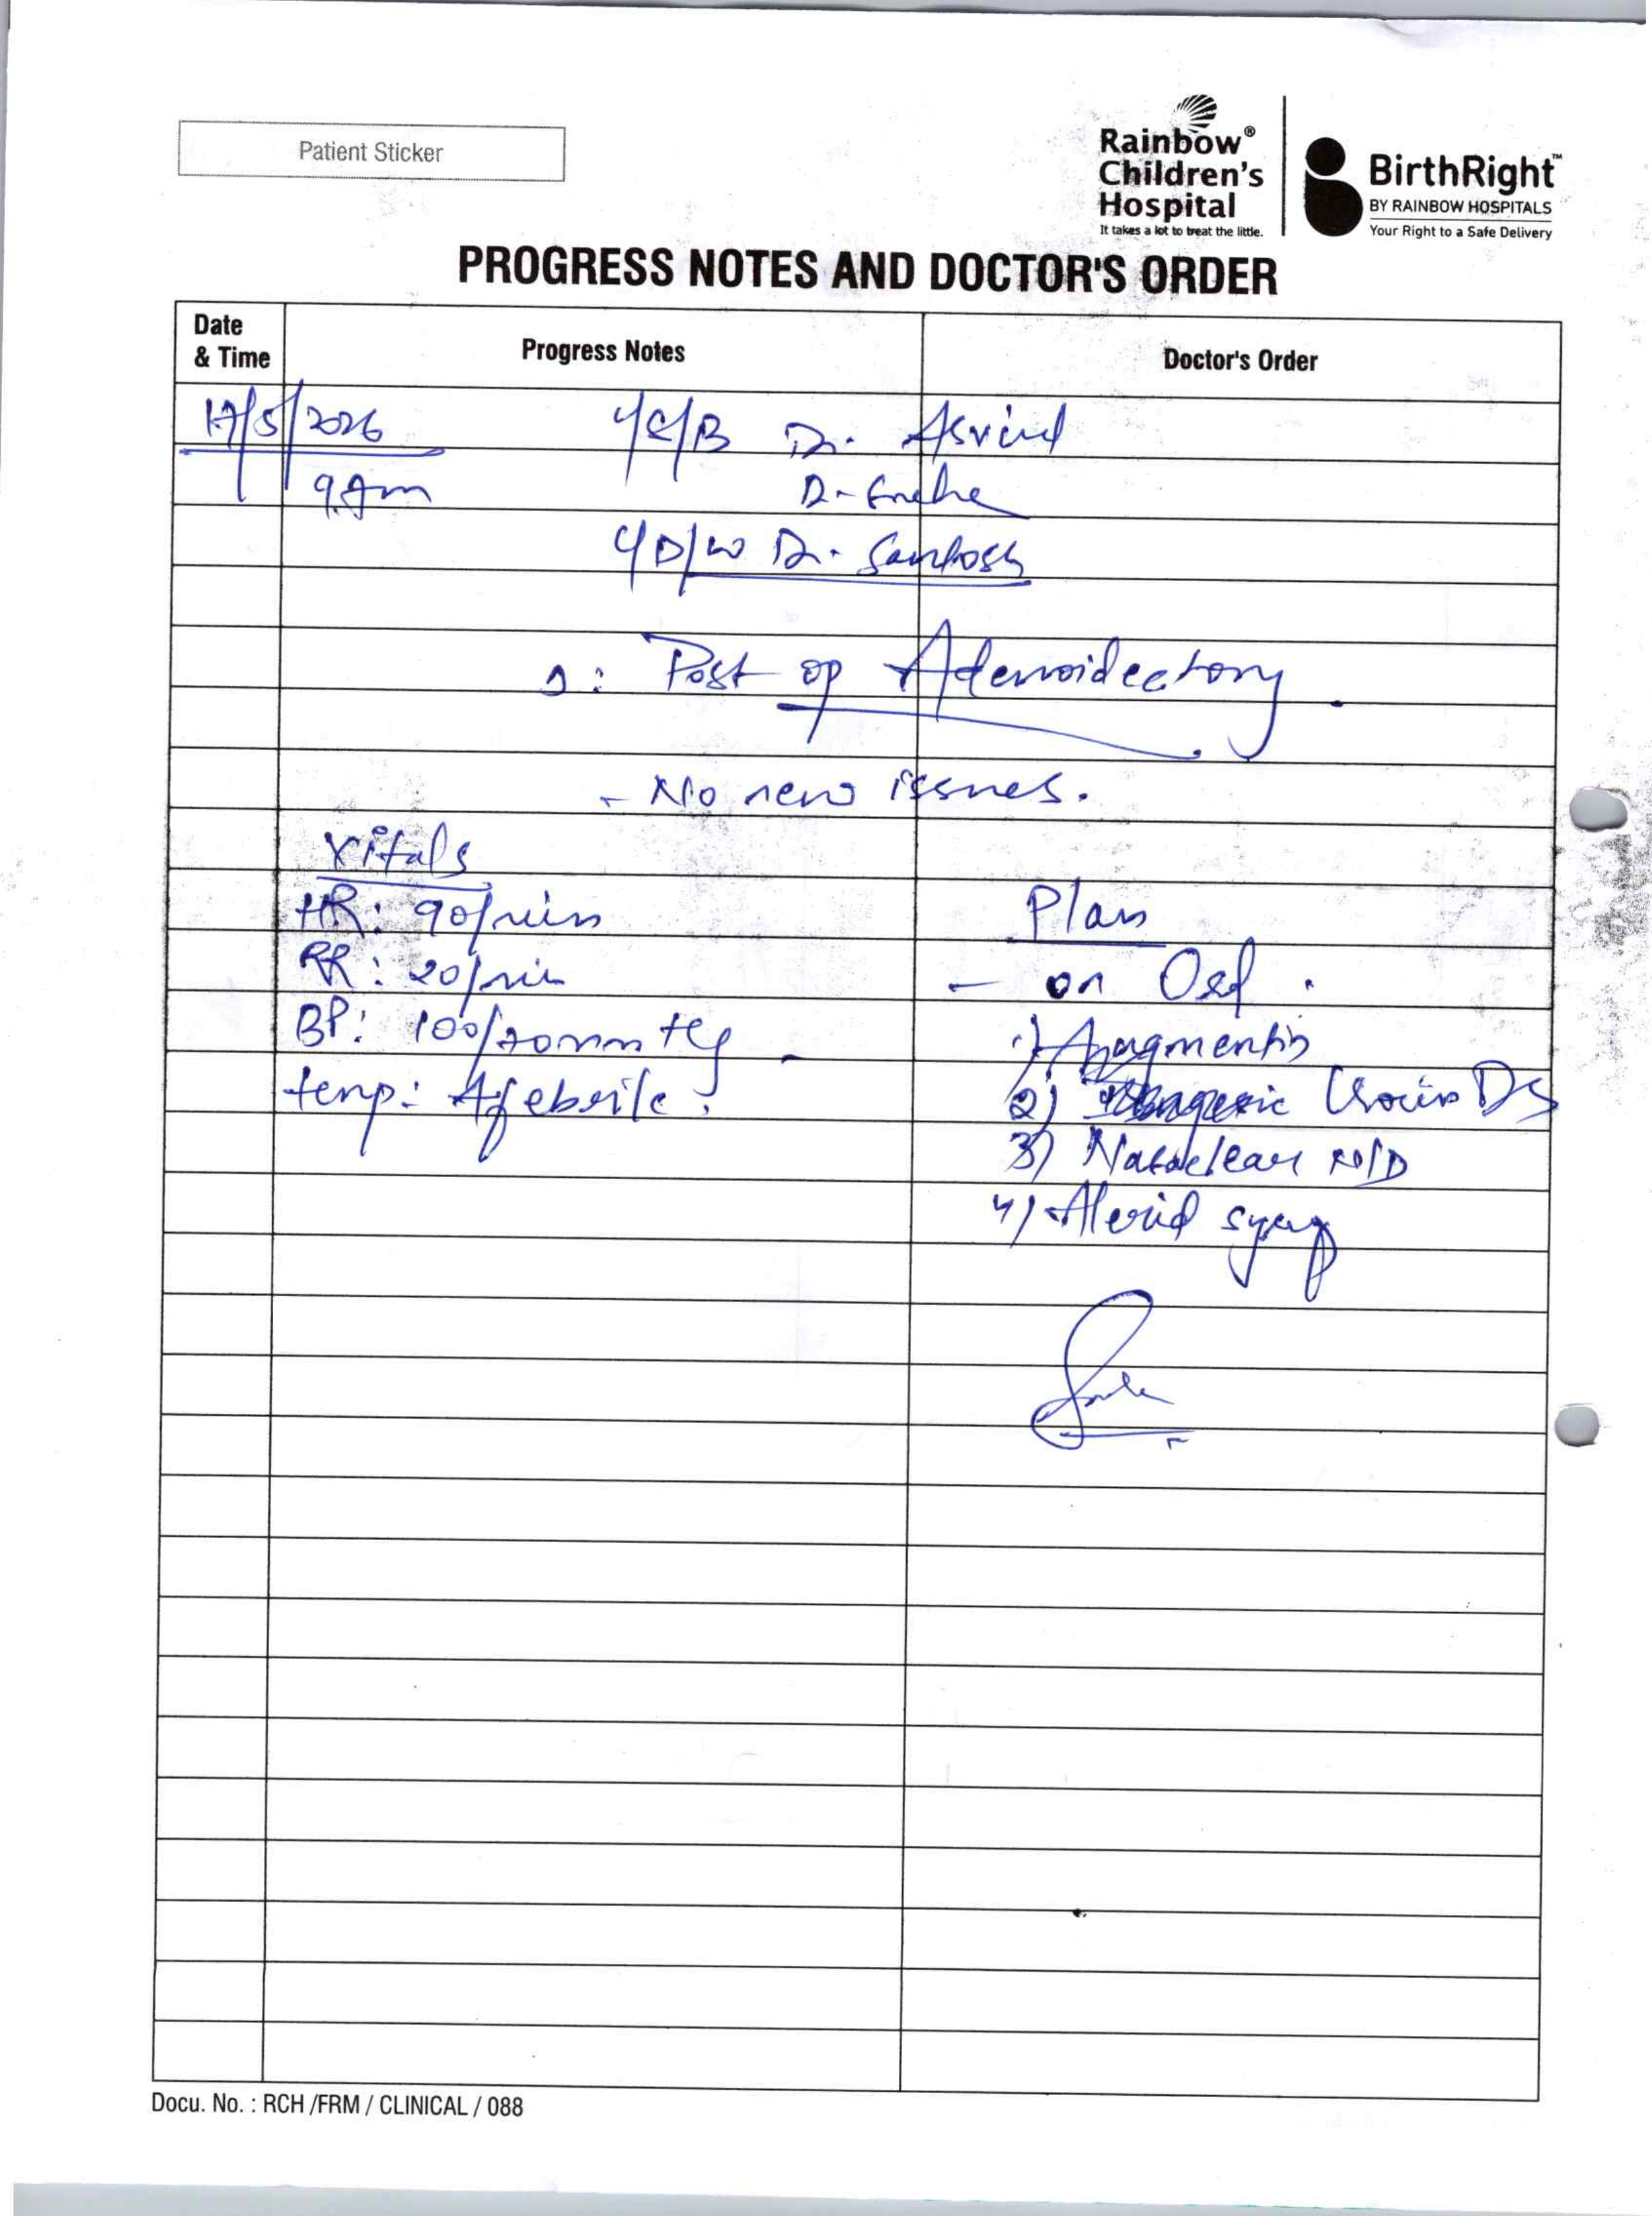 Patient Sticker
Rainbow®
Children's
Hospital
It takes a lot to treat the little.
BirthRight™
BY RAINBOW HOSPITALS
Your Right to a Safe Delivery
PROGRESS NOTES AND DOCTOR'S ORDER
Date
& Time
Progress Notes
Doctor's Order
17/5/2026
9Am
C/B Dr.
Dr
D/W Dr. Santosh
Post op Adenoidectomy.
- No new issues.
Vitals
HR: 90/min
RR: 20/min
BP: 100/70mmHg
temp: Afebrile.
Plan
- on
1) Augmentin
2) Crocin DS
3) Nasoclear N/D
4) Alerid syrup
Docu. No. : RCH /FRM / CLINICAL / 088